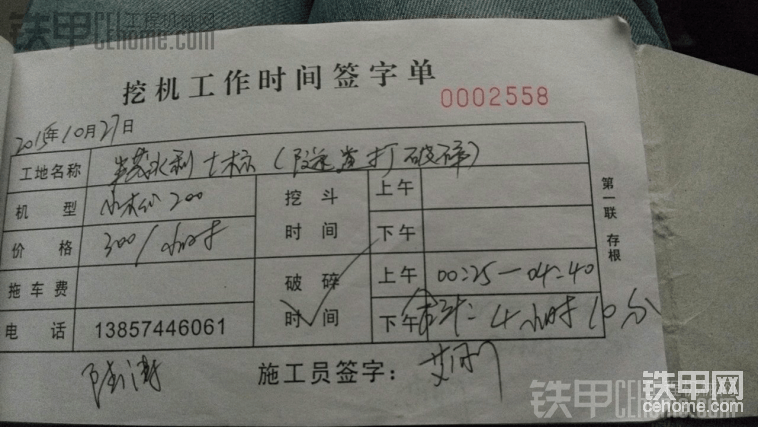 铁甲工程机械网
CEhome.com
挖机工作时间签字单
0002558
2015年10月27日
工地名称 水利七标(隧道打破碎)
机型 小松200
挖斗时间 上午
下午
价格 300/小时
拖车费
破碎时间 上午 00:25—04:40
电话 13857446061
下午 合计:4小时10分
第一联 存根
施工员签字:
铁甲网
cehome.com